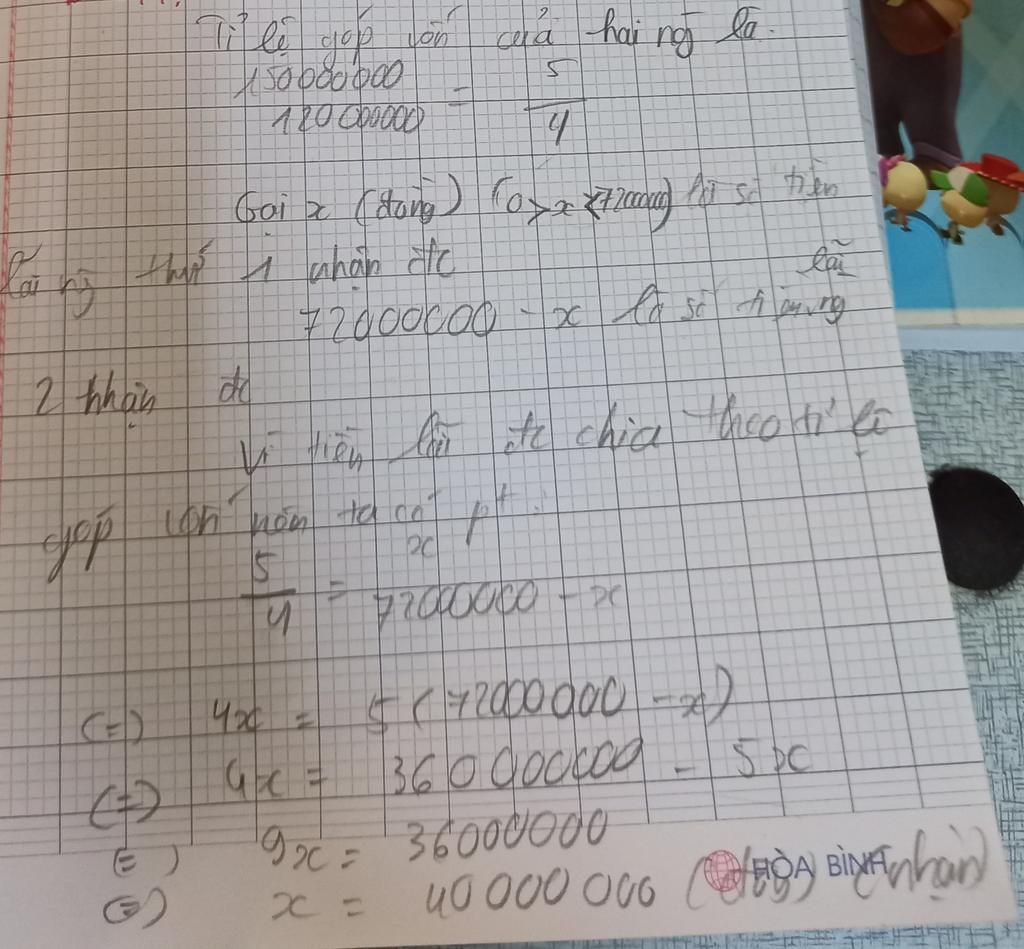 Tỉ lệ góp vốn của hai ng là.
150000000
120000000
=
5
4
Gọi x (đồng) (0>x<72000000) là số tiền
lãi ng thứ 1 nhận đc
lãi
72000000 - x là số tiền ng
2 nhận đc
Vì tiền lãi đc chia theo tỉ lệ
góp vốn nên ta có pt:
5
4
=
x
72000000 - x
(=) 4x = 5 (72000000 - x)
(=) 4x = 360000000 - 5x
(=) 9x = 36000000
(=) x = 40000000 (nhận)
HÒA BÌNH